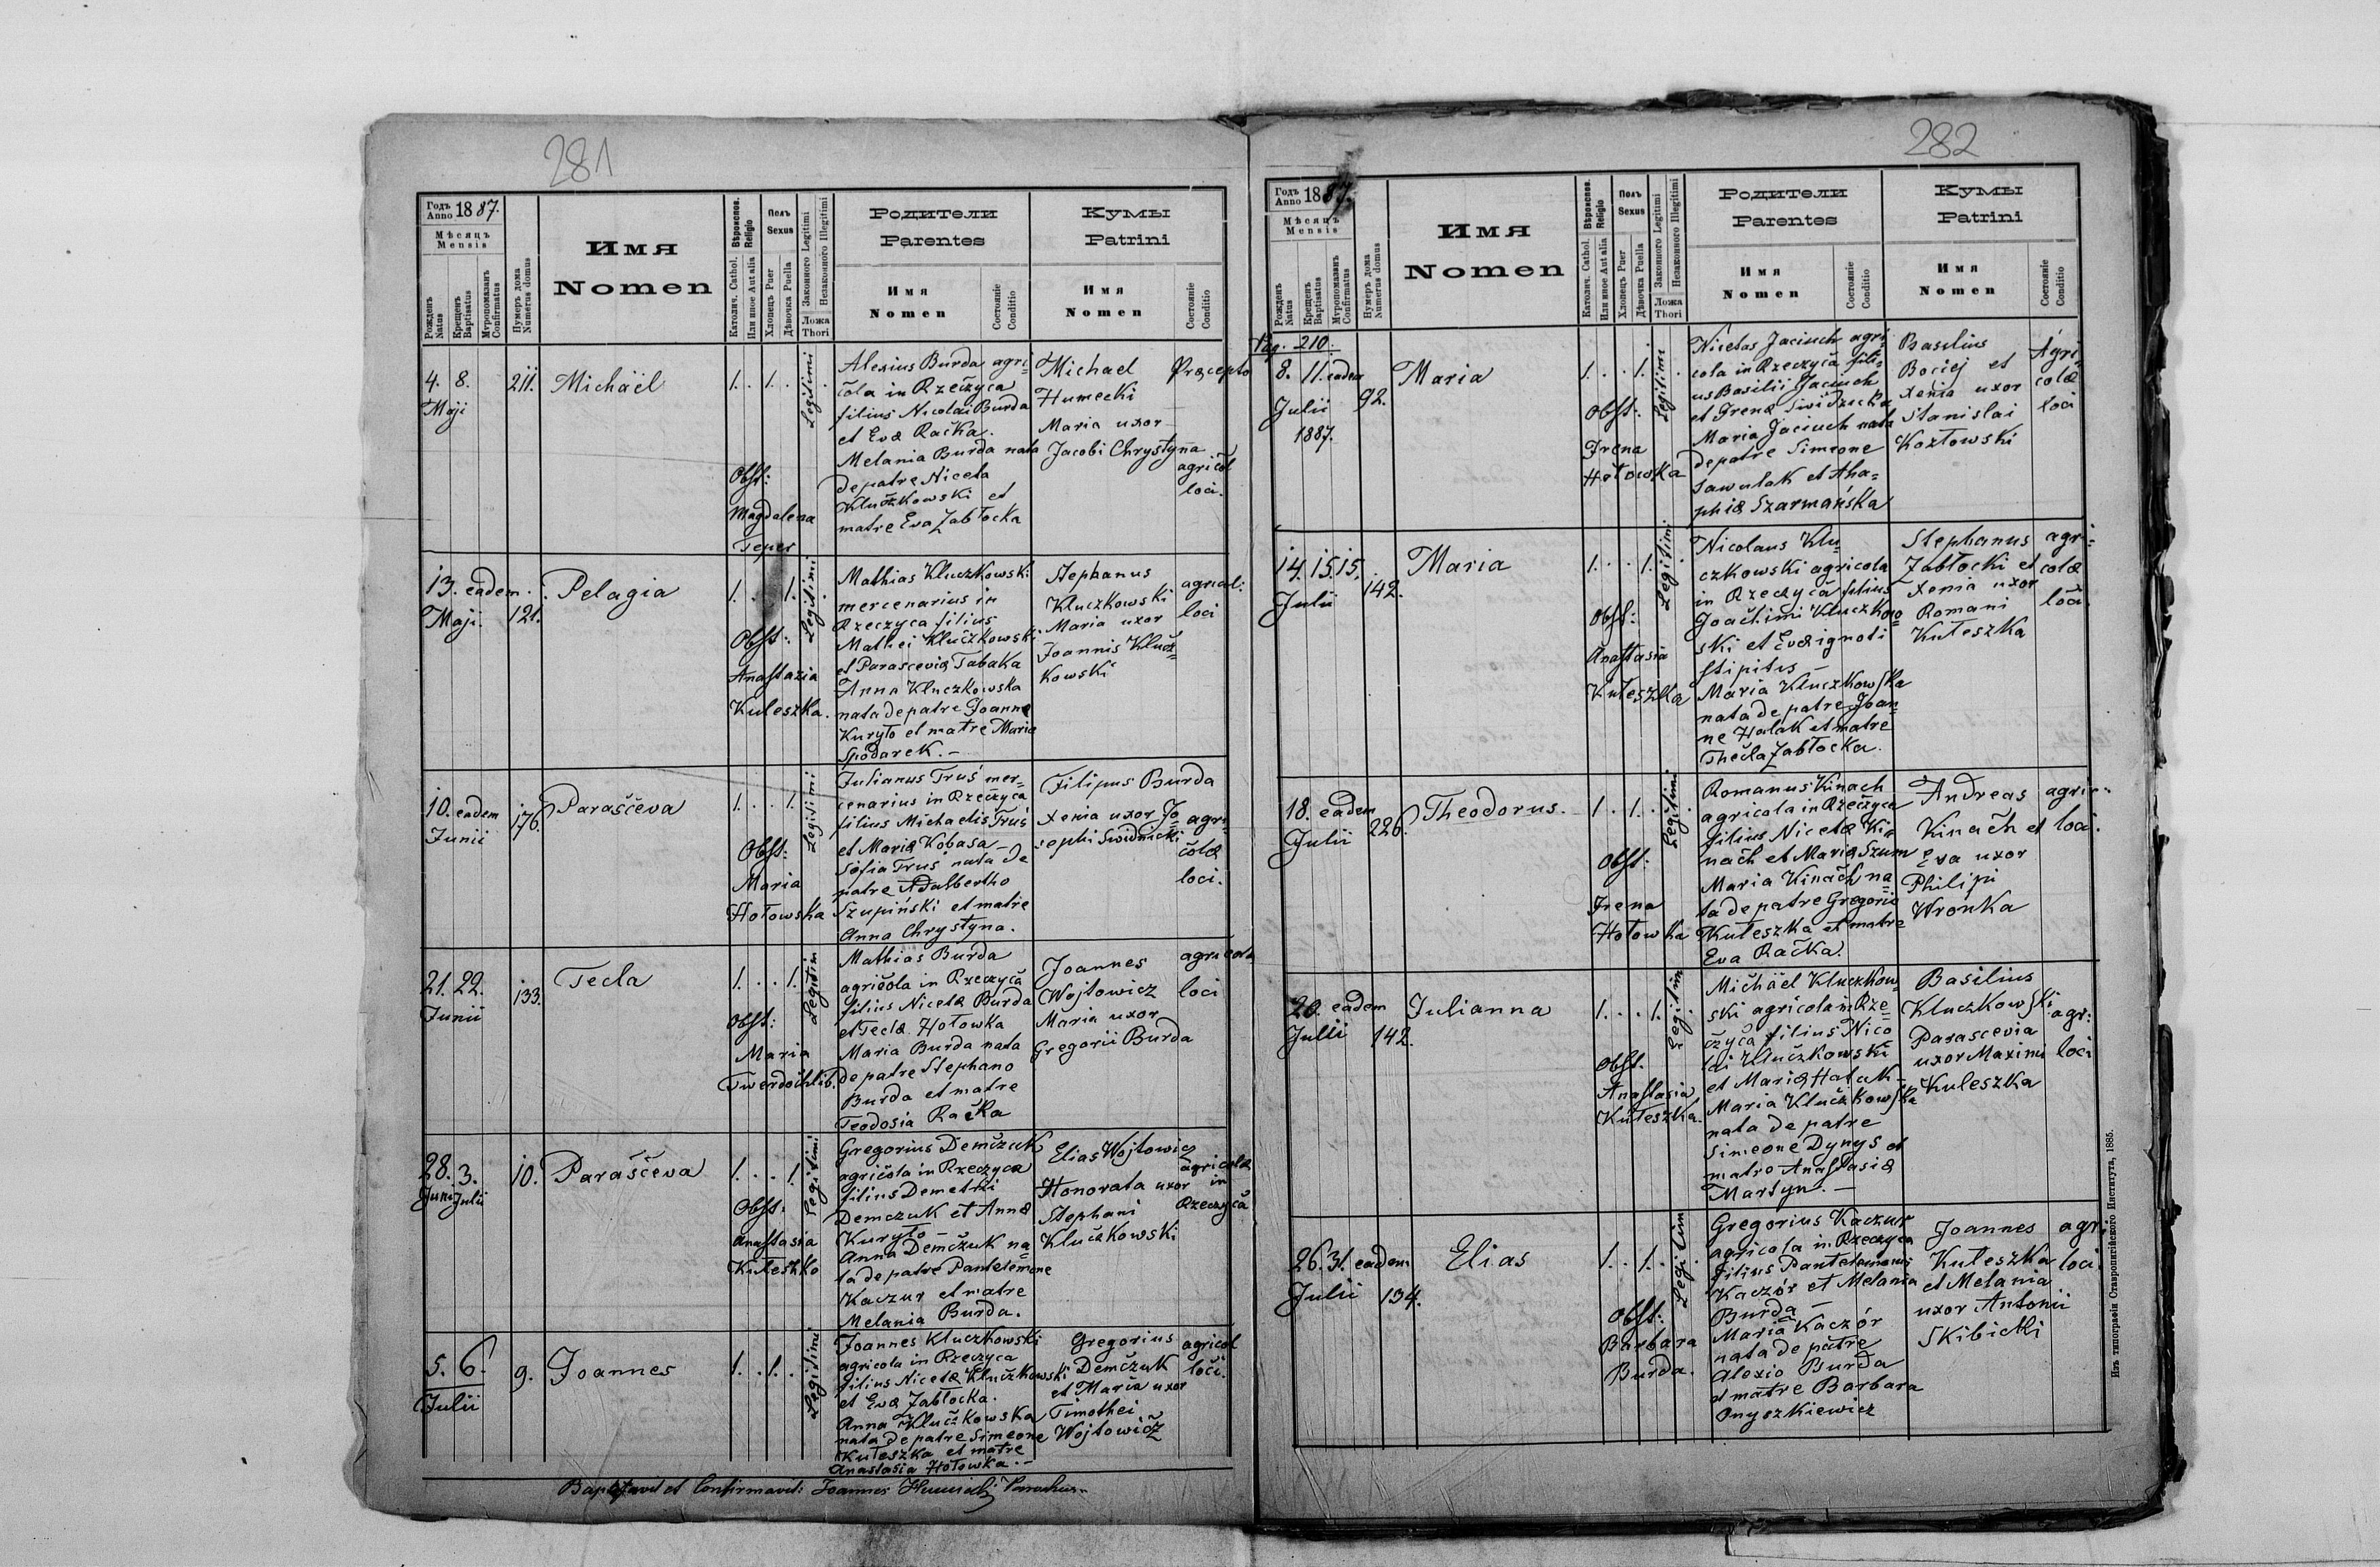 281
Годъ
Anno 1887.
Мѣсяцъ
Mensis
Рожденъ
Natus
Крещенъ
Baptisatus
Муропомазанъ
Confirmatus
Нумеръ дома
Numerus domus
Имя
Nomen
Вѣроиспов.
Religio
Католич. Cathol.
Или иное Aut alia
Полъ
Sexus
Хлопецъ Puer
Дѣвочка Puella
Законного Legitimi
Незаконного Illegitimi
Ложа
Thori
Родители
Parentes
Имя
Nomen
Состояніе
Conditio
Кумы
Patrini
Имя
Nomen
Состояніе
Conditio
4. 8.
Maji
211.
Michaël
1. . 1. .
Obst:
Magdalena
Teper
Legitimi
Alexius Burda agri=
cola in Rzeczyca
filius Nicolai Burda
et Eva Račka.
Melania Burda nata
de patre Niceta
Kluczkowski et
matre Eva Zabłocka
Michael
Humecki
Maria uxor
Jacobi Chrystyna
Præcepto
agricol
loci.
13. eadem.
Maji.
121.
Pelagia
1. . 1.
Obst:
Anastazia
Kuleszka.
Legitimi
Mathias Kluczkowski
mercenarius in
Rzeczyca filius
Mathei Kluczkowski
et Parascevia Tabaka
Anna Kluczkowska
nata de patre Joanne
Kuryło et matre Maria
Spodarek. -
Stephanus
Kluczkowski
Maria uxor
Joannis Klucz=
kowski
agricoli
loci
10. eadem
Junii
176.
Parasčeva
1. . . 1.
Obst:
Maria
Hołowska
Legitimi
Julianus Truś mer=
cenarius in Rzeczyca
filius Michaelis Truś
et Maria Kobasa -
Sofia Truś nata de
patre Adalbertho
Szupiński et matre
Anna Chrystyna.
Filipus Burda
Xenia uxor Jo
sephi Swidnicki
agri=
colæ
loci.
21. 22.
Junii
133.
Tecla
1. . . 1.
Obst:
Maria
Twerdochlib.
Legitim
Mathias Burda
agricola in Rzeczyca
filius Niceta Burda
et Tecla Hołowka
Maria Burda nata
de patre Stephano
Burda et matre
Teodosia Račka
Joannes
Wojtowicz
Maria uxor
Gregorii Burda
agricola
loci
28. 3.
Juni Julii
10.
Parasčeva
1. . . 1.
Obst:
Anastasia
Kuleszko
Legitimi
Gregorius Demczuk
agricola in Rzeczyca
filius Demetri
Demczuk et Anna
Kuryło -
Anna Demczuk na
ta de patre Panteleimone
Kaczur et matre
Melania Burda.
Elias Wojtowicz
Honorata uxor
Stephani
Kluczkowski
agricolæ
in
Rzeczyca
5. 6.
Julii
9.
Joannes
1. . 1. .
Legitimi
Joannes Kluczkowski
agricola in Rzeczyca
filius Niceta Kluczkowski
et Eva Zabłocka.
Anna Kluczkowska
nata de patre Simeone
Kuleszka et matre
Anastasia Hołowka. -
Gregorius
Demczuk
et Maria uxor
Timothei
Wojtowicz
agricol
loci.
Baptisavit et Confirmavit: Joannes Humecki Parochus
282
Годъ
Anno 1887.
Мѣсяцъ
Mensis
Рожденъ
Natus
Крещенъ
Baptisatus
Муропомазанъ
Confirmatus
Нумеръ дома
Numerus domus
Имя
Nomen
Вѣроиспов.
Religio
Католич. Cathol.
Или иное Aut alia
Полъ
Sexus
Хлопецъ Puer
Дѣвочка Puella
Законного Legitimi
Незаконного Illegitimi
Ложа
Thori
Родители
Parentes
Имя
Nomen
Состояніе
Conditio
Кумы
Patrini
Имя
Nomen
Состояніе
Conditio
Pag. 210.
8. 11. eadem
Julii
1887.
92.
Maria
1. . . 1.
Obst:
Irena
Hołowska
Legitimi
Nicetas Jaciuch agri=
cola in Rzeczyca fili=
us Basilii Jaciuch
et Irena Swidzicka
Maria Jaciuch nata
de patre Simeone
Sawulak et Aha=
phia Szarmańska
Basilius
Bociej et
Xenia uxor
Stanislai
Kozłowski
Agri=
colæ
loci
14. 15. 15.
Julii
142.
Maria
1. . . 1.
Obst:
Anastasia
Kuleszka
Legitimi
Nicolaus Klu=
czkowski agricola
in Rzeczyca filius
Joachimi Kluczkow=
ski et Eva ignoti
stipitis -
Maria Kluczkowska
nata de patre Joan=
ne Hałak et matre
Thecla Zabłocka.
Stephanus
Zabłocki et
Xenia uxor
Romani
Kuleszka
agri=
colæ
loci.
18. eadem
Julii
226.
Theodorus.
1. . 1. .
Obst:
Irena
Hołowka
Legitimi
Romanus Kinach
agricola in Rzeczyca
filius Niceta Ki=
nach et Maria Szum
Maria Kinach na=
ta de patre Gregorio
Kuleszka et matre
Eva Račka.
Andreas
Kinach et
Eva uxor
Philipi
Wronka
agric=
loci.
20. eadem
Julii
142.
Julianna
1. . . 1.
Obst.
Anastasia
Kuleszka.
Legitim
Michäel Kluczkow=
ski agricola in Rze=
czyca filius Nico
lai Kluczkowski
et Maria Hałak -
Maria Kluczkowska
nata de patre
Simeone Dynys et
matre Anastasia
Martyn. -
Basilius
Kluczkowski
Parascevia
uxor Maximi
Kuleszka
agr:
loci
26. 31. eadem
Julii
134.
Elias
1. . 1. .
Obst:
Barbara
Burda.
Legitim
Gregorius Kaczur
agricola in Rzeczyca
filius Panteleimonis
Kaczór et Melania
Burda -
Maria Kaczór
nata de patre
Alexio Burda
et matre Barbara
Onyszkiewicz
Joannes
Kuleszka
et Melania
uxor Antonii
Skibicki
agr.
loci.
Изъ типографіи Ставропигійского Института, 1885.